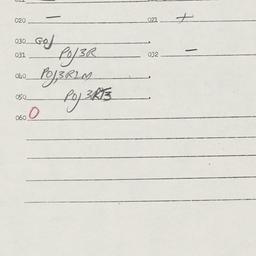 020 — 021 +
030 GOJ
031 POJ3R 032 —
040 POJ3R2M
050
060 O